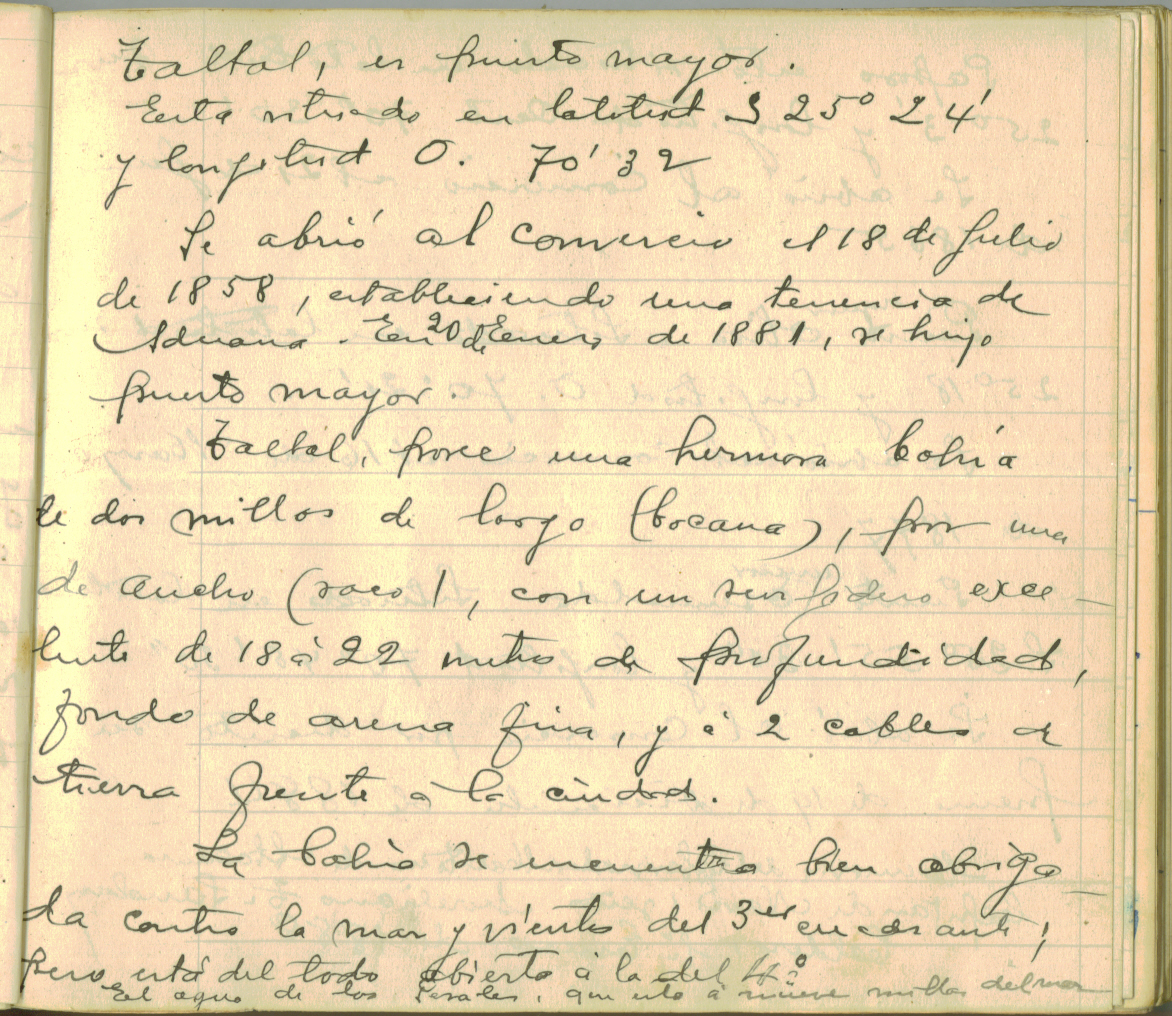 Taltal, es puerto mayor.
Esta situado en latitud S 25º 24'
y longitud O. 70' 32
Se abrió al comercio el 18 de Julio
de 1858, estableciendo una tenencia de
Aduana. En 20 de Enero de 1881, se hizo
puerto mayor.
Taltal, posee una hermosa bahía
de dos millas de largo (bocana), por una
de ancho (saco), con un surgidero exce-
lente de 18 á 22 metros de profundidad,
fondo de arena fina, y á 2 cables de
tierra frente á la ciudad.
La bahia se encuentra bien abriga-
da contra la mar y vientos del 3er cuadrante;
pero está del todo abierta á la del 4º
El agua de los Perales, que esta á nueve millas del mar